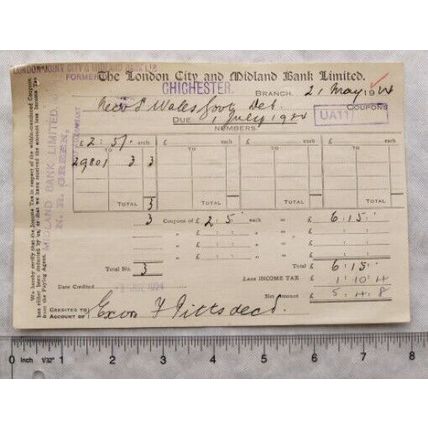 LONDON JOINT CITY & MIDLAND BANK LTD.
FORMERLY
The London City and Midland Bank Limited.
CHICHESTER. BRANCH. 21 May 1924
New S Wales Govt Deb. COUPONS
DUE 1 July 1924 UA11
NUMBERS
£ 2:5/: each £ each £ each £ each
29801 3 3
TO TO TO TO
3
TOTAL TOTAL TOTAL TOTAL
3 Coupons of £ 2:5: each = £ 6:15:
" " £ : : " = £ : :
" " £ : : " = £ : :
Total No. 3 Total £ 6:15:
Less INCOME TAX £ 1:10:4
Date Credited 1924 Net Amount £ 5:4:8
CREDITED TO
ACCOUNT OF Exon F Pitts decd.
We hereby certify that the Income Tax in respect of the within-mentioned Coupons
has either been deducted by us, or that we have received the amount less Income Tax
from the Paying Agent.
MIDLAND BANK LIMITED.
N. R. GREEN,
ACCOUNTANT
0 Inch 1/32" 1 2 3 4 5 6 7 8